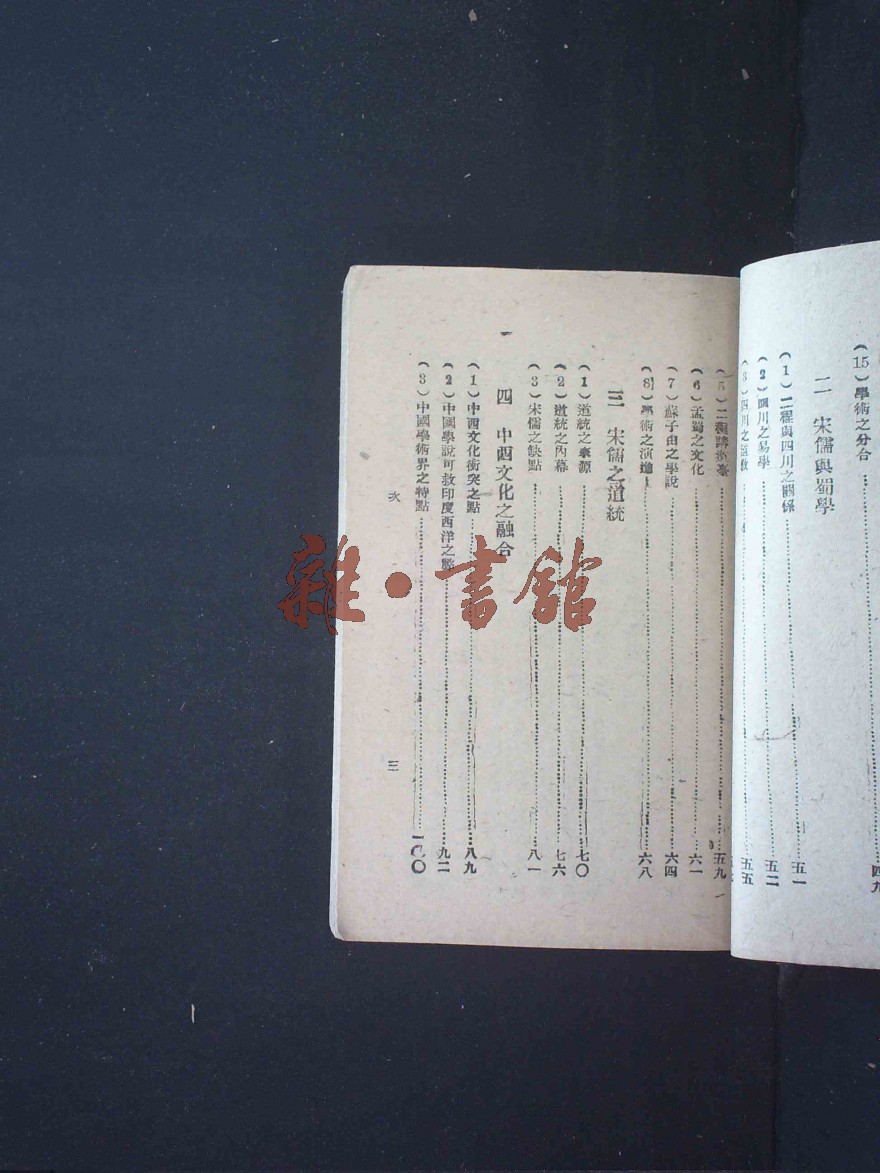 (15)學術之分合……四九
二 宋儒與蜀學
(1)二程與四川之關係……五一
(2)四川之易學……五二
(3)四川之道教……五五
(5)二程講學……五九
(6)孟蜀之文化……六一
(7)蘇子由之學說……六四
(8)學術之演進……六八
三 宋儒之道統
(1)道統之來源……七〇
(2)道統之內幕……七六
(3)宋儒之缺點……八一
四 中西文化之融合
(1)中西文化衝突之點……八九
(2)中國學說可救印度西洋之弊……九二
(3)中國學術界之特點……一〇〇
次
三
雜·書館